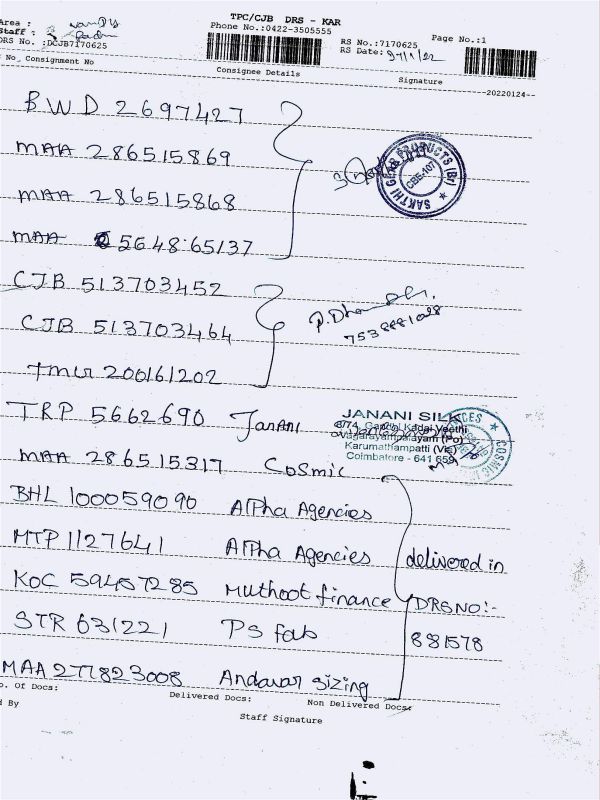 TPC/CJB DRS - KAR
Area :
Phone No.:0422-3505555
Staff :
RS No.:7170625 Page No.:1
DRS No. :DCJB7170625
RS Date: 27/1/22
No_ Consignment No Consignee Details Signature
--20220124--
BWD 2697427
MAA 286515869
SAKTHI GEAR PRODUCTS (Br)
CBE-107
MAA 286515868
MAA 5648 65137
CJB 513703452
CJB 513703464
7538881028
TMU 200161202
TRP 5662690 Janani
JANANI SILK
8/74, Gandhi Kadai Veethi
Vagarayampalayam (Po)
Karumathampatti (Via)
Coimbatore - 641 659
MAA 286515317 Cosmic
BHL 100059090 Alpha Agencies
MTP 1127641 Alpha Agencies delivered in
KOC 59457285 Muthoot finance DRSNO:-
STR 631221 PS fab 881578
MAA 277823008 Andavar sizing
o. Of Docs: Delivered Docs: Non Delivered Docs:
d By Staff Signature